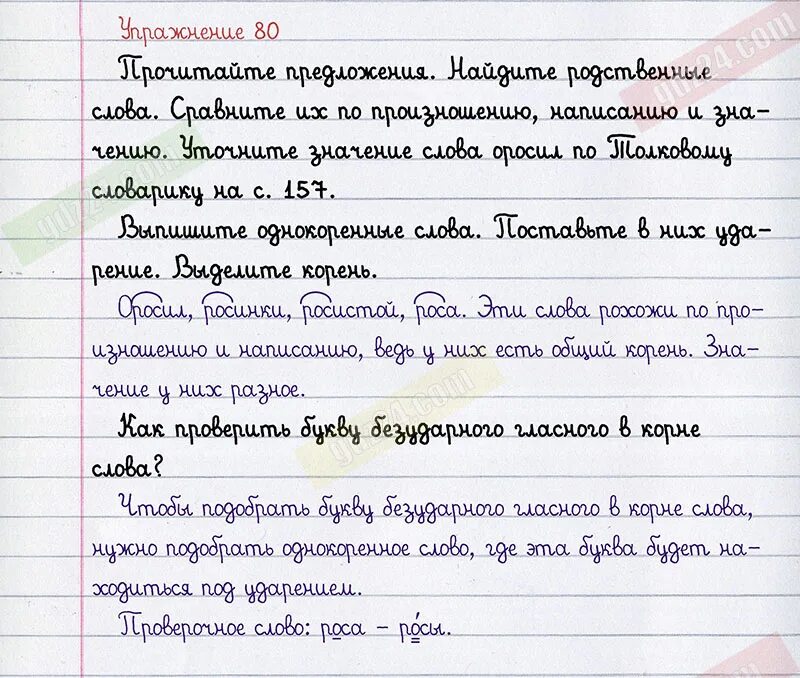 Упражнение 80
Прочитайте предложения. Найдите родственные
слова. Сравните их по произношению, написанию и зна-
чению. Уточните значение слова оросил по Толковому
словарику на с. 157.
Выпишите однокоренные слова. Поставьте в них уда-
рение. Выделите корень.
Оросил, росинки, росистой, роса. Эти слова рохожи по про-
изношению и написанию, ведь у них есть общий корень. Зна-
чение у них разное.
Как проверить букву безударного гласного в корне
слова?
Чтобы подобрать букву безударного гласного в корне слова,
нужно подобрать однокоренное слово, где эта буква будет на-
ходиться под ударением.
Проверочное слово: роса – ро́сы.
gdz24.com
gdz24.com
gdz24.com